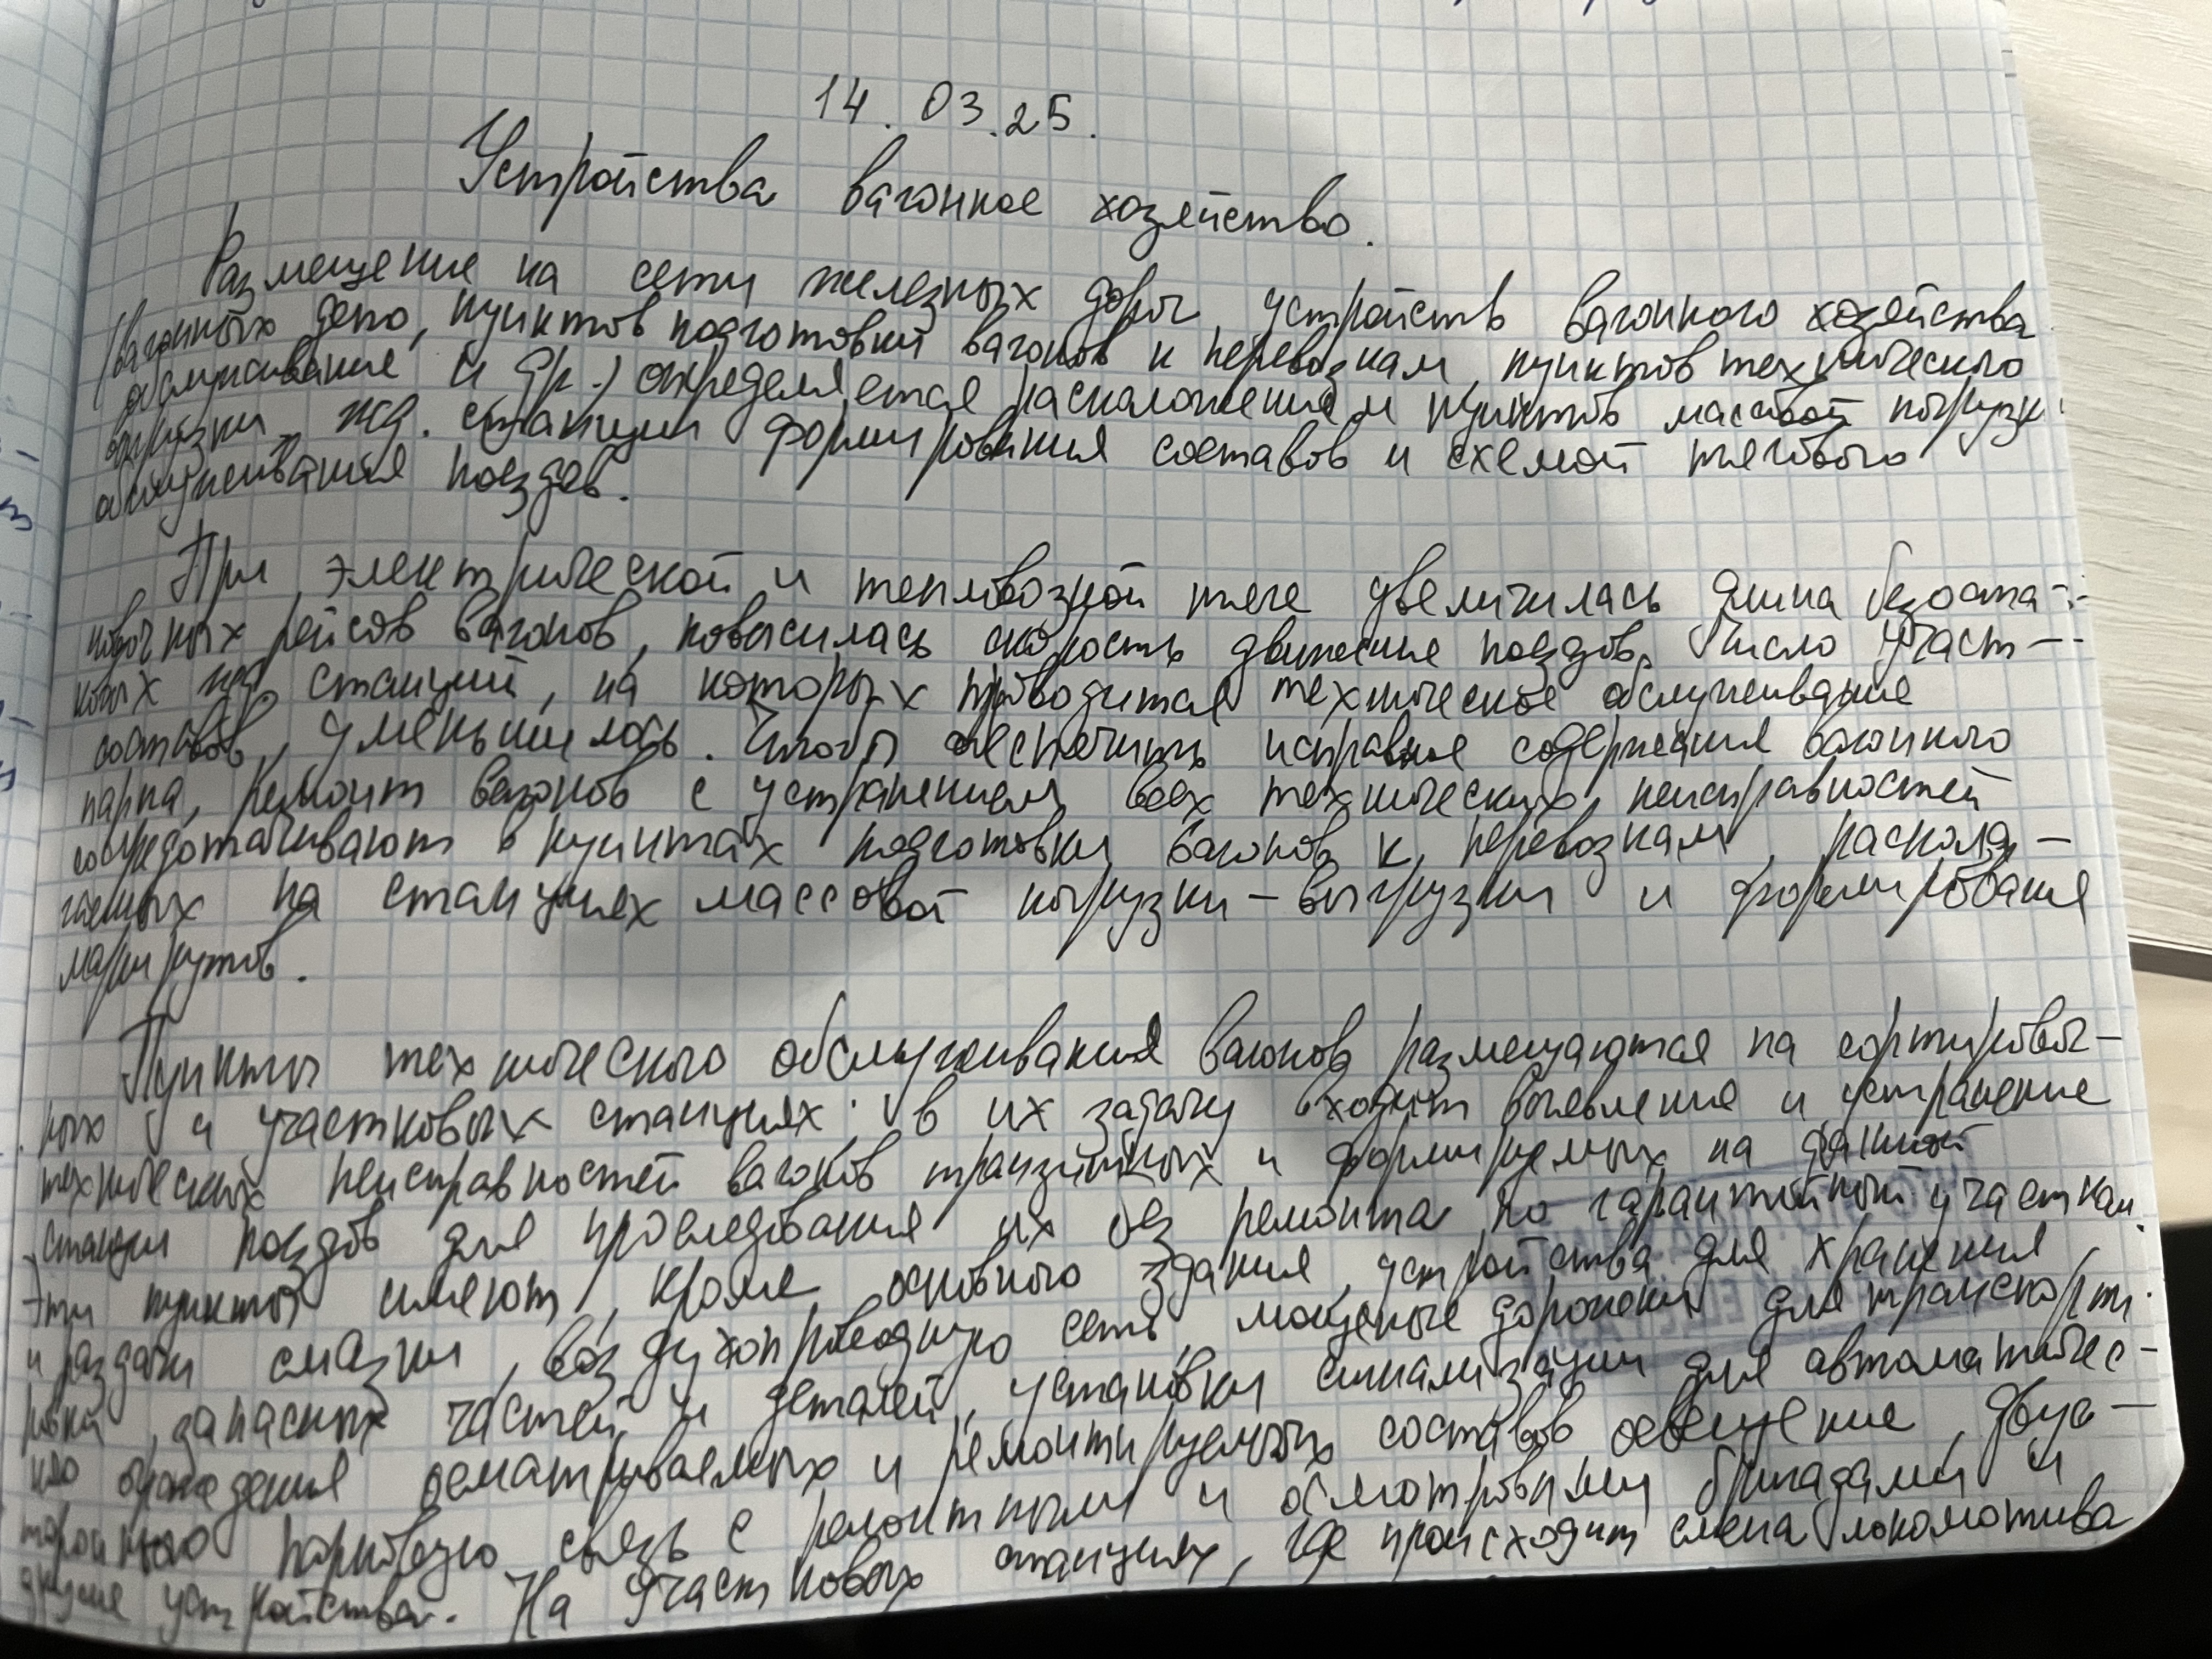 14.03.25.
Устройства вагонное хозяйство.
Размещение на сети железных дорог устройств вагонного хозяйства
(вагонных депо, пунктов подготовки вагонов к перевозкам, пунктов технического
обслуживание и др.) определяется расположением пунктов массовой погрузки
выгрузки жд. станций формирования составов и схемой тягового
обслуживания поездов.
При электрической и тепловозной тяге увеличилась длина безоста-
новочных рейсов вагонов, повысилась скорость движение поездов. Число участ-
ковых жд станций, на которых проводится техническое обслуживание
составов, уменьшилось. Чтобы обеспечить исправное содержание вагонного
парка, ремонт вагонов с устранением всех технических неисправностей
сосредотачивают в пунктах подготовки вагонов к перевозкам, распола-
гаемых на станциях массовой погрузки-выгрузки и формирования
маршрутов.
Пункты технического обслуживания вагонов размещаются на сортировоч-
ных и участковых станциях: в их задачу входит выявление и устранение
технических неисправностей вагонов транзитных и формируемых на данной
станции поездов для проследования их без ремонта по гарантийным участкам.
Эти пункты имеют, кроме основного здания, устройства для хранения
и раздачи смазки, воздухопроводную сеть, мощеные дорожки для транспорти-
ровки запасных частей и деталей, установки сигнализации для автоматичес-
кого ограждения осматриваемых и ремонтируемых составов освещение, двус-
торонную парковую связь с ремонтными и осмотровыми бригадами и
другие устройства. На участковых станциях, где происходит смена локомотива